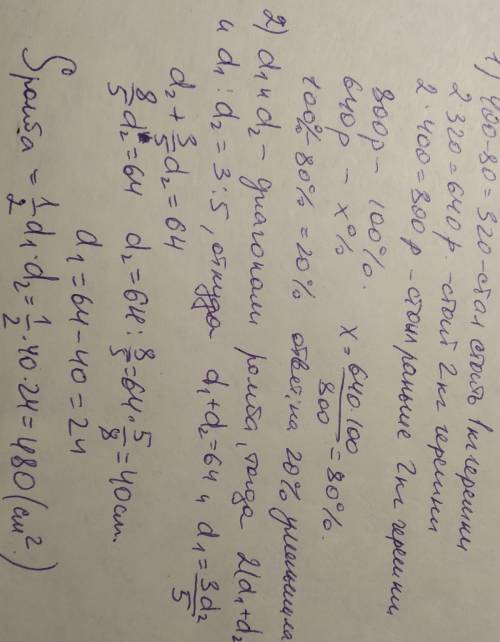 1) 400-80=320-стал стоить 1кг черешни
2·320=640р.-стоит 2кг черешни
2·400=800р-стоил раньше 2кг черешни
800р - 100%.
640р - x%  x=640·100/800=80%.
100%-80%=20% ответ: на 20% уменьшила
2) d₁ и d₂ - диагонали ромба, тогда 2(d₁+d₂
и d₁:d₂=3:5, откуда d₁+d₂=64 и d₁=3d₂/5
d₂+3/5d₂=64
8/5d₂=64  d₂=64:8/5=64·5/8=40см.
d₁=64-40=24
Sромба=1/2d₁·d₂=1/2·40·24=480(см².)